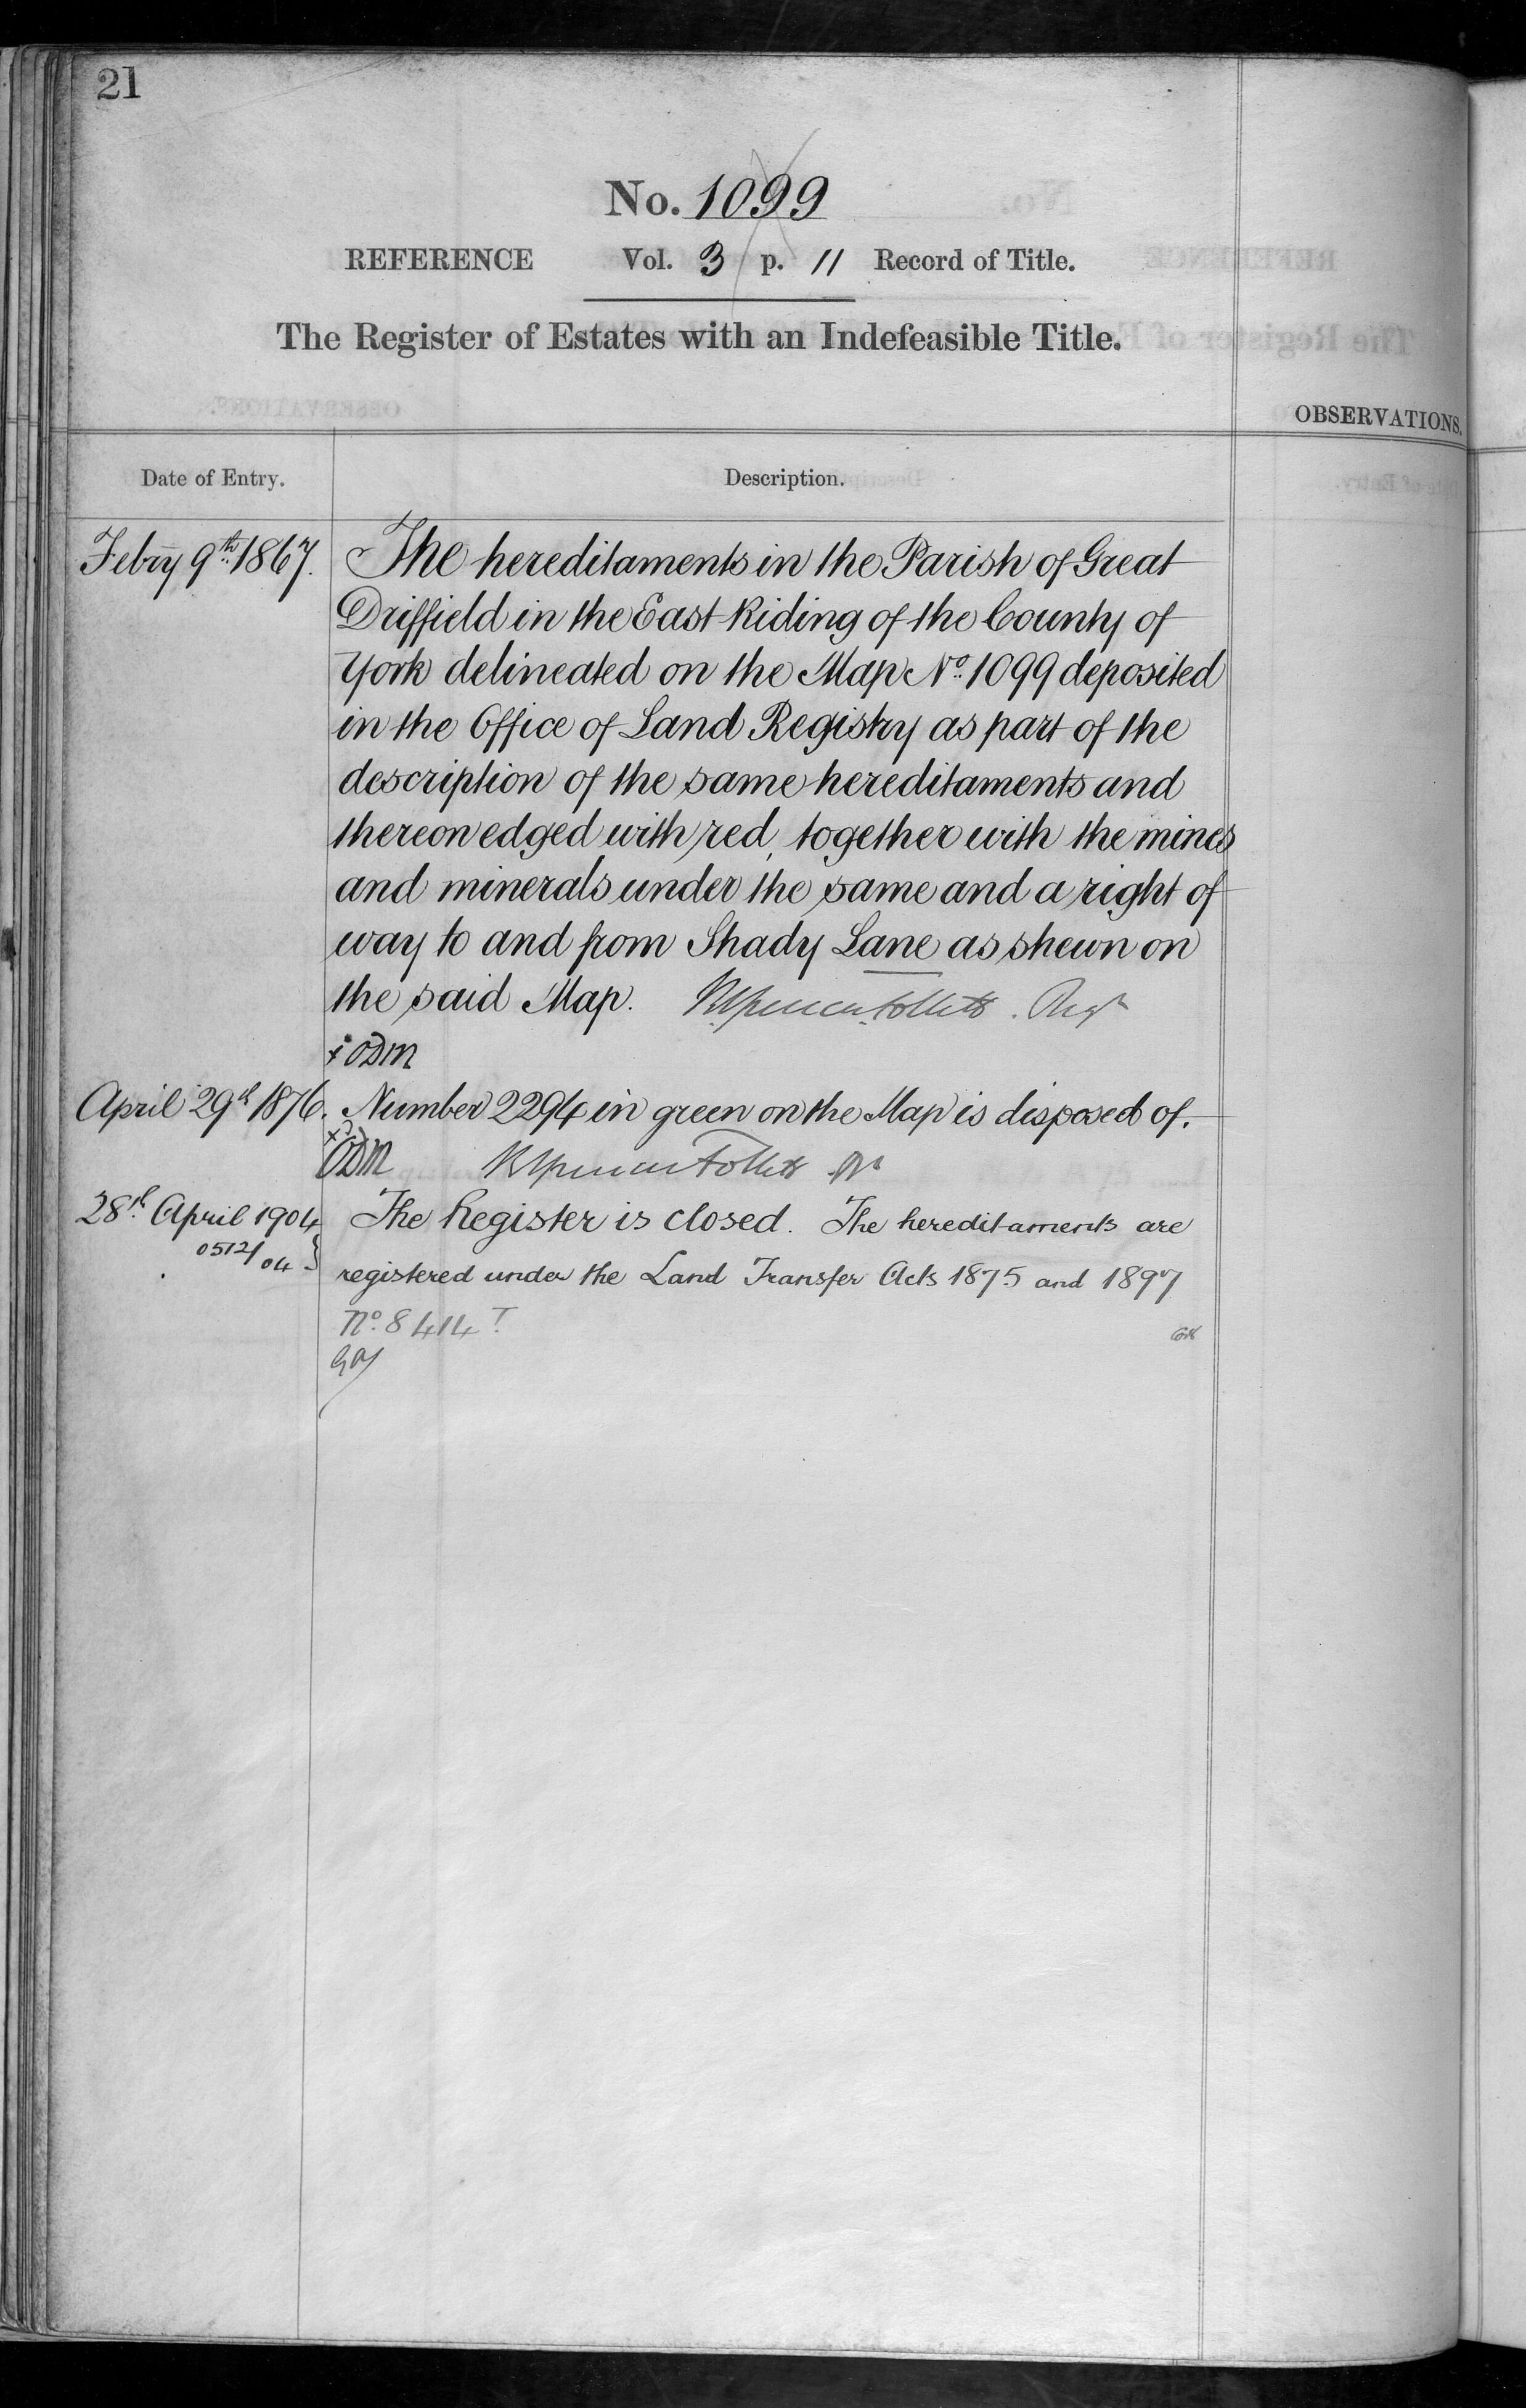 21
No. 1099
REFERENCE Vol. 3 p. 11 Record of Title.
The Register of Estates with an Indefeasible Title.
OBSERVATIONS.
Date of Entry. Description.
Febry 9th 1867. The hereditaments in the Parish of Great
Driffield in the East Riding of the County of
York delineated on the Map No. 1099 deposited
in the Office of Land Registry as part of the
description of the same hereditaments and
thereon edged with red, together with the mines
and minerals under the same and a right of
way to and from Shady Lane as shewn on
the said Map. Follett Regr
ODM
April 29th 1876. Number 2294 in green on the Map is disposed of.
ODM Follett
28th April 1904 The Register is closed. The hereditaments are
0512/04 } registered under the Land Transfer Acts 1875 and 1897
No. 8414 T.